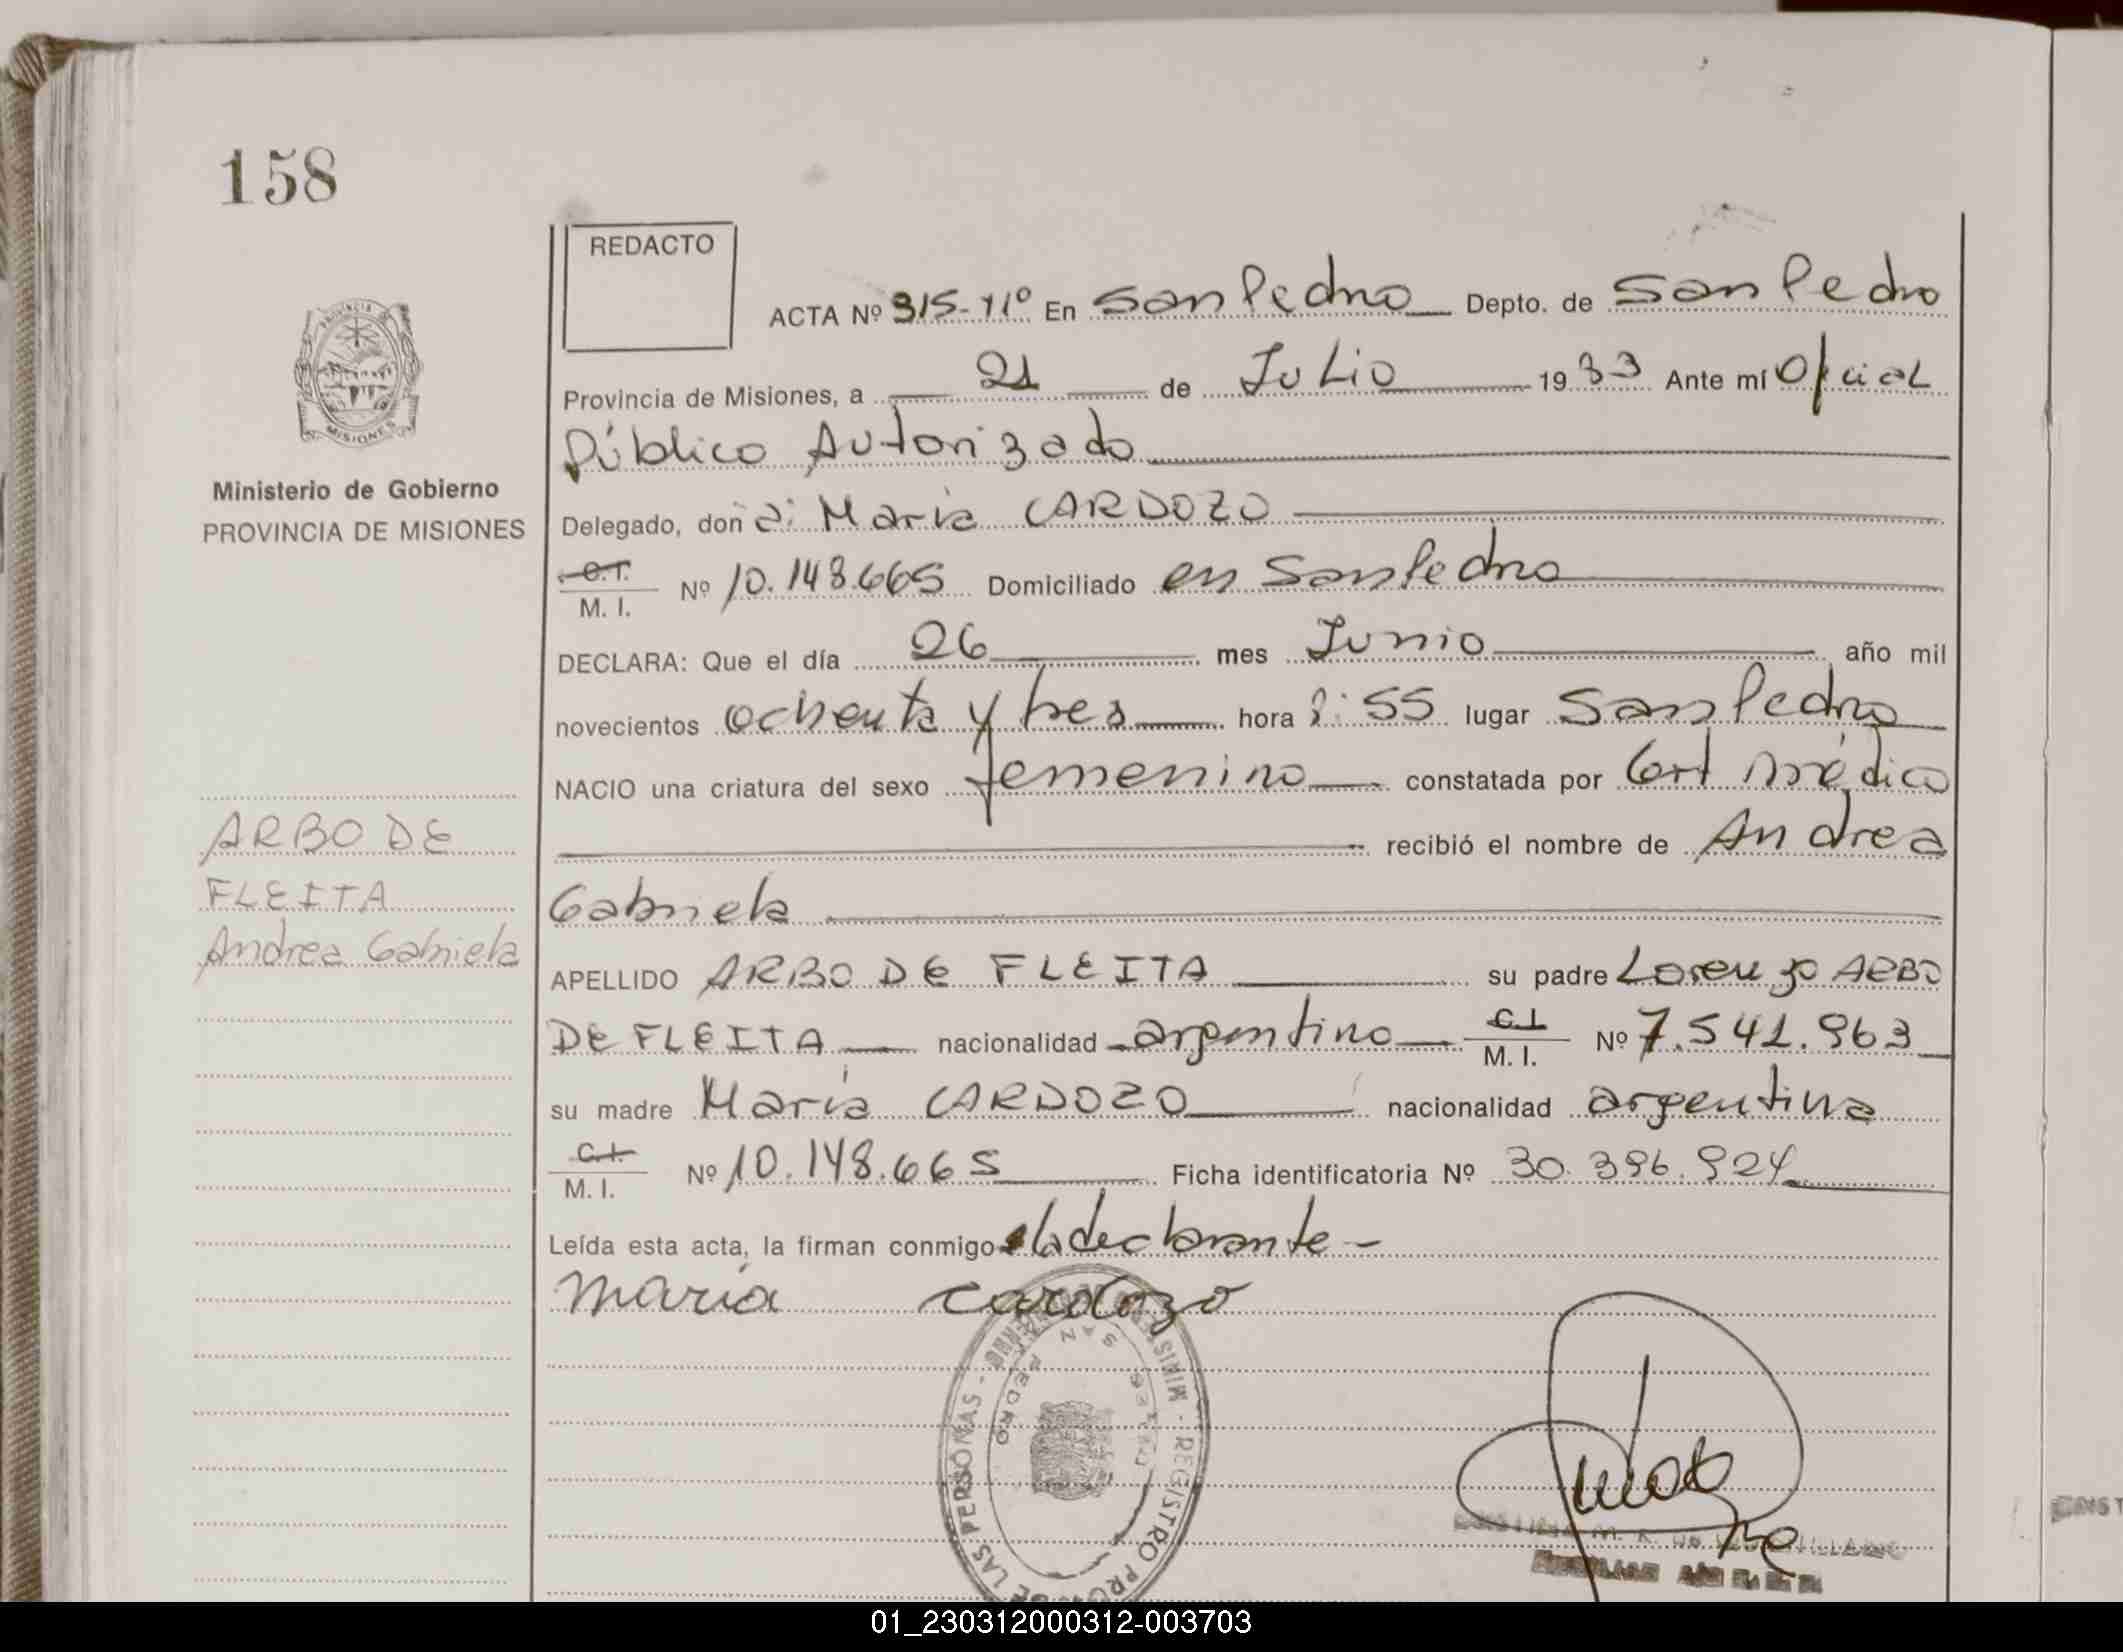 158
REDACTO
ACTA Nº 315-11º En San Pedro Depto. de San Pedro
Provincia de Misiones, a 21 de Julio 1983 Ante mí Oficial
Público Autorizado
Delegado, don a: María CARDOZO
C.I. M. I. Nº 10.148.665 Domiciliado en San Pedro
DECLARA: Que el día 26 mes Junio año mil
novecientos ochenta y tres hora 8:55 lugar San Pedro
NACIO una criatura del sexo femenino constatada por Cert médico
recibió el nombre de Andrea
Gabriela
APELLIDO ARBO DE FLEITA su padre Lorenzo ARBO
DE FLEITA nacionalidad argentino C.I. M. I. Nº 7.541.963
su madre María CARDOZO nacionalidad argentina
C.I. M. I. Nº 10.148.665 Ficha identificatoria Nº 30.396.924
Leída esta acta, la firman conmigo la declarante -
maria cardozo
PROVINCIA
MISIONES
Ministerio de Gobierno
PROVINCIA DE MISIONES
ARBO DE
FLEITA
Andrea Gabriela
REGISTRO DE LAS PERSONAS
SAN PEDRO
01_230312000312-003703